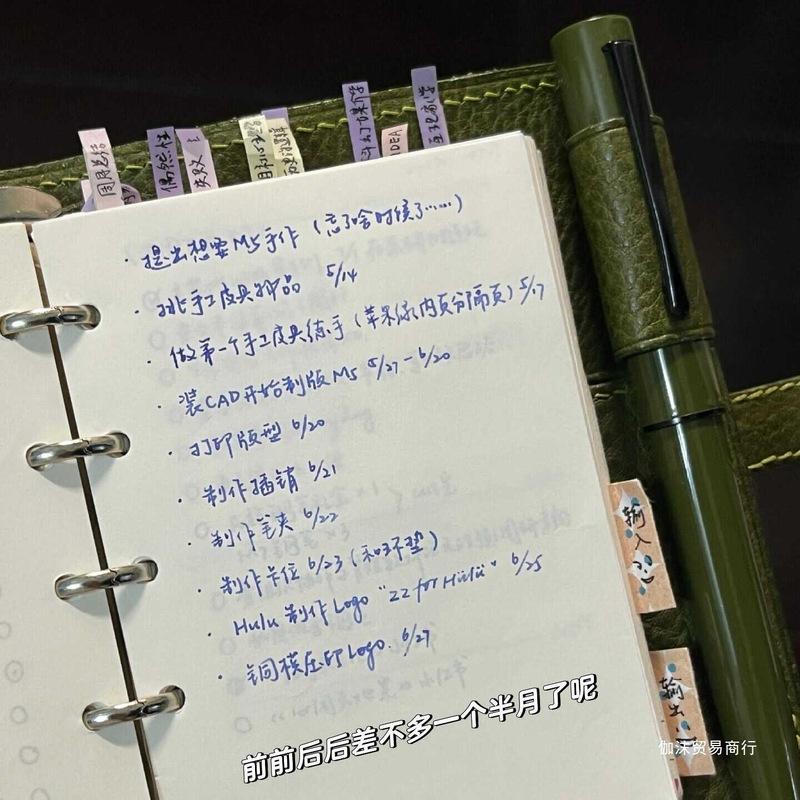 周月总结
偶然性
失败
IDEA
·提出想要M5手作（忘了啥时候了……）
·挑手工皮具样品 5/14
·做第一个手工皮具练手（苹果绿内页分隔页）5/17
·装CAD开始制版M5 5/27-6/20
·打印版型 6/20
·制作插销 6/21
·制作笔夹 6/22
·制作卡位 6/23（和环垫）
·Hulu 制作Logo “ZZ for Hulu” 6/25
·铜模压印Logo. 6/27
输入
输出
前前后后差不多一个半月了呢
伽沫贸易商行